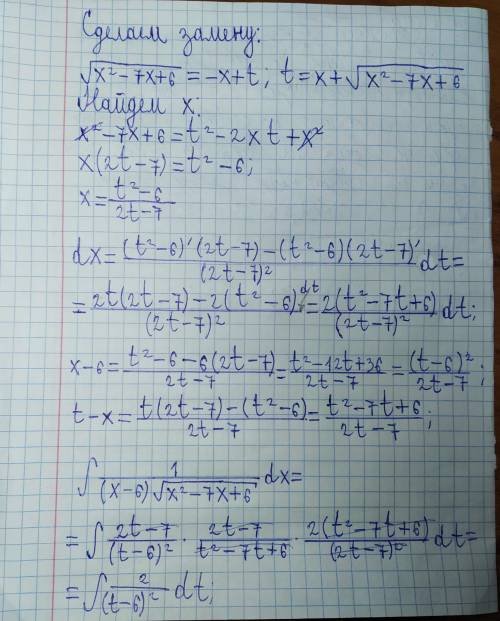 Сделаем замену:
√(x²-7x+6) = -x+t; t = x+√(x²-7x+6)
Найдем x:
x²-7x+6 = t²-2xt+x²
x(2t-7) = t²-6;
x = (t²-6)/(2t-7)
dx = ((t²-6)'(2t-7)-(t²-6)(2t-7)')/(2t-7)² dt =
= (2t(2t-7)-2(t²-6))/(2t-7)² dt = 2(t²-7t+6)/(2t-7)² dt;
x-6 = (t²-6-6(2t-7))/(2t-7) = (t²-12t+36)/(2t-7) = (t-6)²/(2t-7);
t-x = (t(2t-7)-(t²-6))/(2t-7) = (t²-7t+6)/(2t-7);
∫ 1/((x-6)√(x²-7x+6)) dx =
= ∫ (2t-7)/(t-6)² · (2t-7)/(t²-7t+6) · 2(t²-7t+6)/(2t-7)² dt =
= ∫ 2/(t-6)² dt;